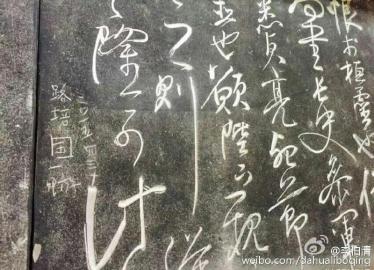 恨於桓靈也侍
書長史參軍
悉貞亮死節
臣也願陛下親
之則漢
隆可計
路培国
@李伯清
weibo.com/dahualiboqing